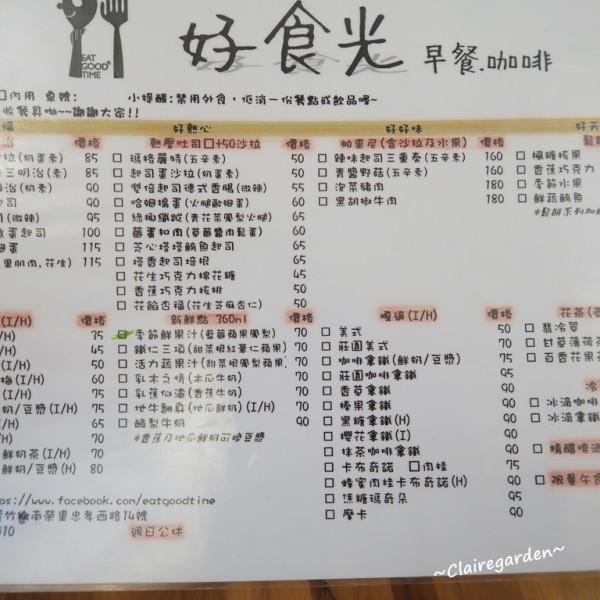 EAT
GOOD
TIME
好食光 早餐.咖啡
□內用 桌號: 小提醒:禁用外食，低消一份餐點或飲品喔~
收餐具呦~~謝謝大家!!
福 價格
沙拉(奶蛋素) 85
三明治(素) 85
明治(奶素) 90
司(微辣) 95
蛋起司 100
姆蛋 115
里肌肉,花生) 115
好熱心
熱壓吐司□+50沙拉 價格
□ 瑪格麗特(五辛素) 50
□ 起司蛋沙拉(奶蛋素) 50
□ 雙倍起司德式香腸(微辣) 55
□ 哈姆搗蛋(火腿歐姆蛋) 60
□ 綠椰纖蹤(青花菜鳳梨火腿) 65
□ 蛋扣肉(草莓醬肉鬆蛋) 60
□ 芝心塔塔鮪魚起司 65
□ 塔香起司培根 65
□ 花生巧克力棉花糖 45
□ 香蕉巧克力核桃 50
□ 花餡杏福(花生芝麻杏仁) 50
好好味
帕里尼(含沙拉及水果) 價格
□ 辣味起司三重奏(五辛素) 160
□ 青醬野菇(五辛素) 160
□ 泡菜豬肉 180
□ 黑胡椒牛肉 180
好天
鬆
□ 楓糖核果
□ 香蕉巧克力
□ 季節水果
□ 鮮蔬鮪魚
*鬆餅系列加
(I/H) 價格
/H) 35
/H) 45
(I/H) 50
梅(I/H) 60
(I/H) 75
奶/豆漿(I/H) 55
I/H) 65
) 70
鮮奶茶(I/H) 70
鮮奶/豆漿(H) 80
新鮮點 360ml 價格
□ 季節鮮果汁(藍莓蘋果鳳梨) 70
□ 鐵仁三項(甜菜根紅薏仁蘋果) 70
□ 活力蔬果汁(甜菜根鳳梨蘋果) 70
□ 乳木之情(木瓜牛奶) 70
□ 乳蕉似漆(香蕉牛奶) 70
□ 地牛翻身(地瓜鮮奶)(I/H) 70
□ 酪梨牛奶 90
*香蕉及地瓜鮮奶可換豆漿
嘎逼(I/H) 價格
□ 美式 50
□ 莊園美式 70
□ 咖啡拿鐵(鮮奶/豆漿) 70
□ 莊園咖啡拿鐵 90
□ 香草拿鐵 90
□ 榛果拿鐵 90
□ 黑糖拿鐵(H) 90
□ 櫻花拿鐵(I) 90
□ 抹茶咖啡拿鐵 90
□ 卡布奇諾 □肉桂 75
□ 蜂蜜肉桂卡布奇諾(H) 90
□ 焦糖瑪奇朵 95
□ 摩卡 90
花茶(
□ 翡冷翠
□ 甘草薄荷茶
□ 百香花果茶
冷
□ 冰滴咖啡
□ 冰滴拿鐵
□ 精釀啤酒
□ 限量午食
ps://www.facebook.com/eatgoodtime
竹崎南榮里忠孝西路14號
910 週日公休
~Clairegarden~